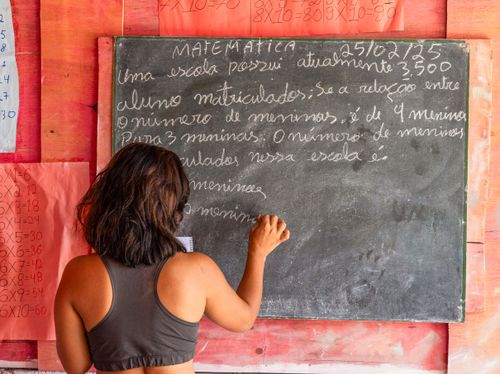 7X10=70
8X10=80
9X10=90
MATEMÁTICA 25/02/25
Uma escola possui atualmente 3,500
aluno matriculados: Se a relação entre
O número de meninas, é de 4 meninos
Para 3 meninas. O número de meninos
culados nessa escola é:
meninos
menin
6X3=18
6X4=24
6X5=30
6X6=36
6X7=42
6X8=48
6X9=54
6X10=60